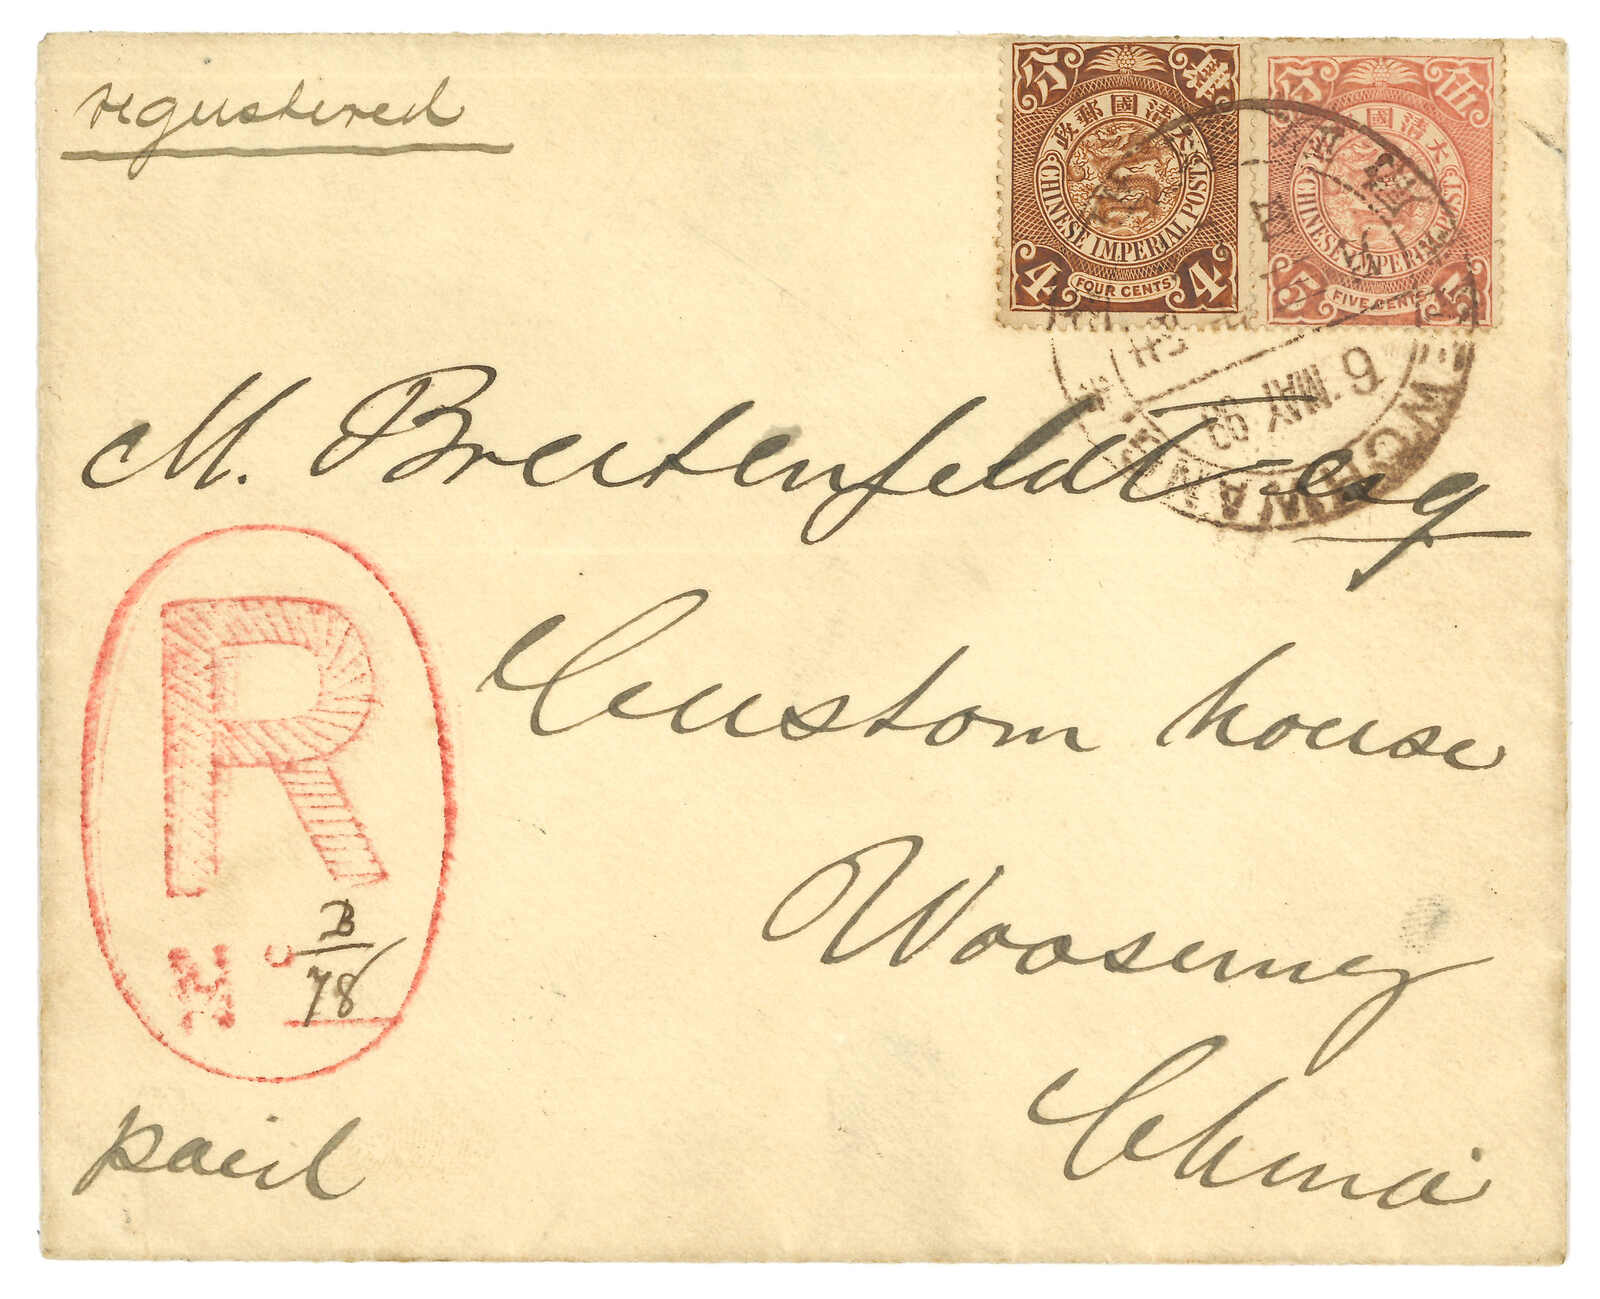 registered
分 肆
大清國郵政
CHINESE IMPERIAL POST
4 4
FOUR CENTS
分 伍
大清國
CHINESE IMPERIAL POST
5 5
FIVE CENTS
6 MAY 99
NEWCHWANG
M. Breitenfeldt esq
Custom house
Woosung
China
R
No B/78
paid